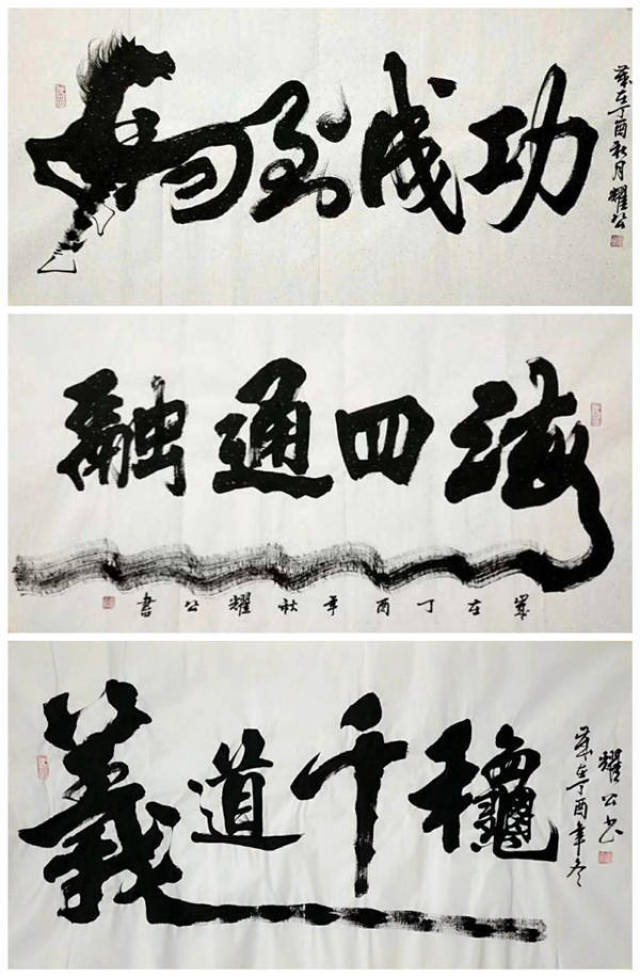 馬到成功
歲在丁酉秋月耀公
融通四海
歲在丁酉年秋耀公書
義道千穐
歲在丁酉年冬
耀公书